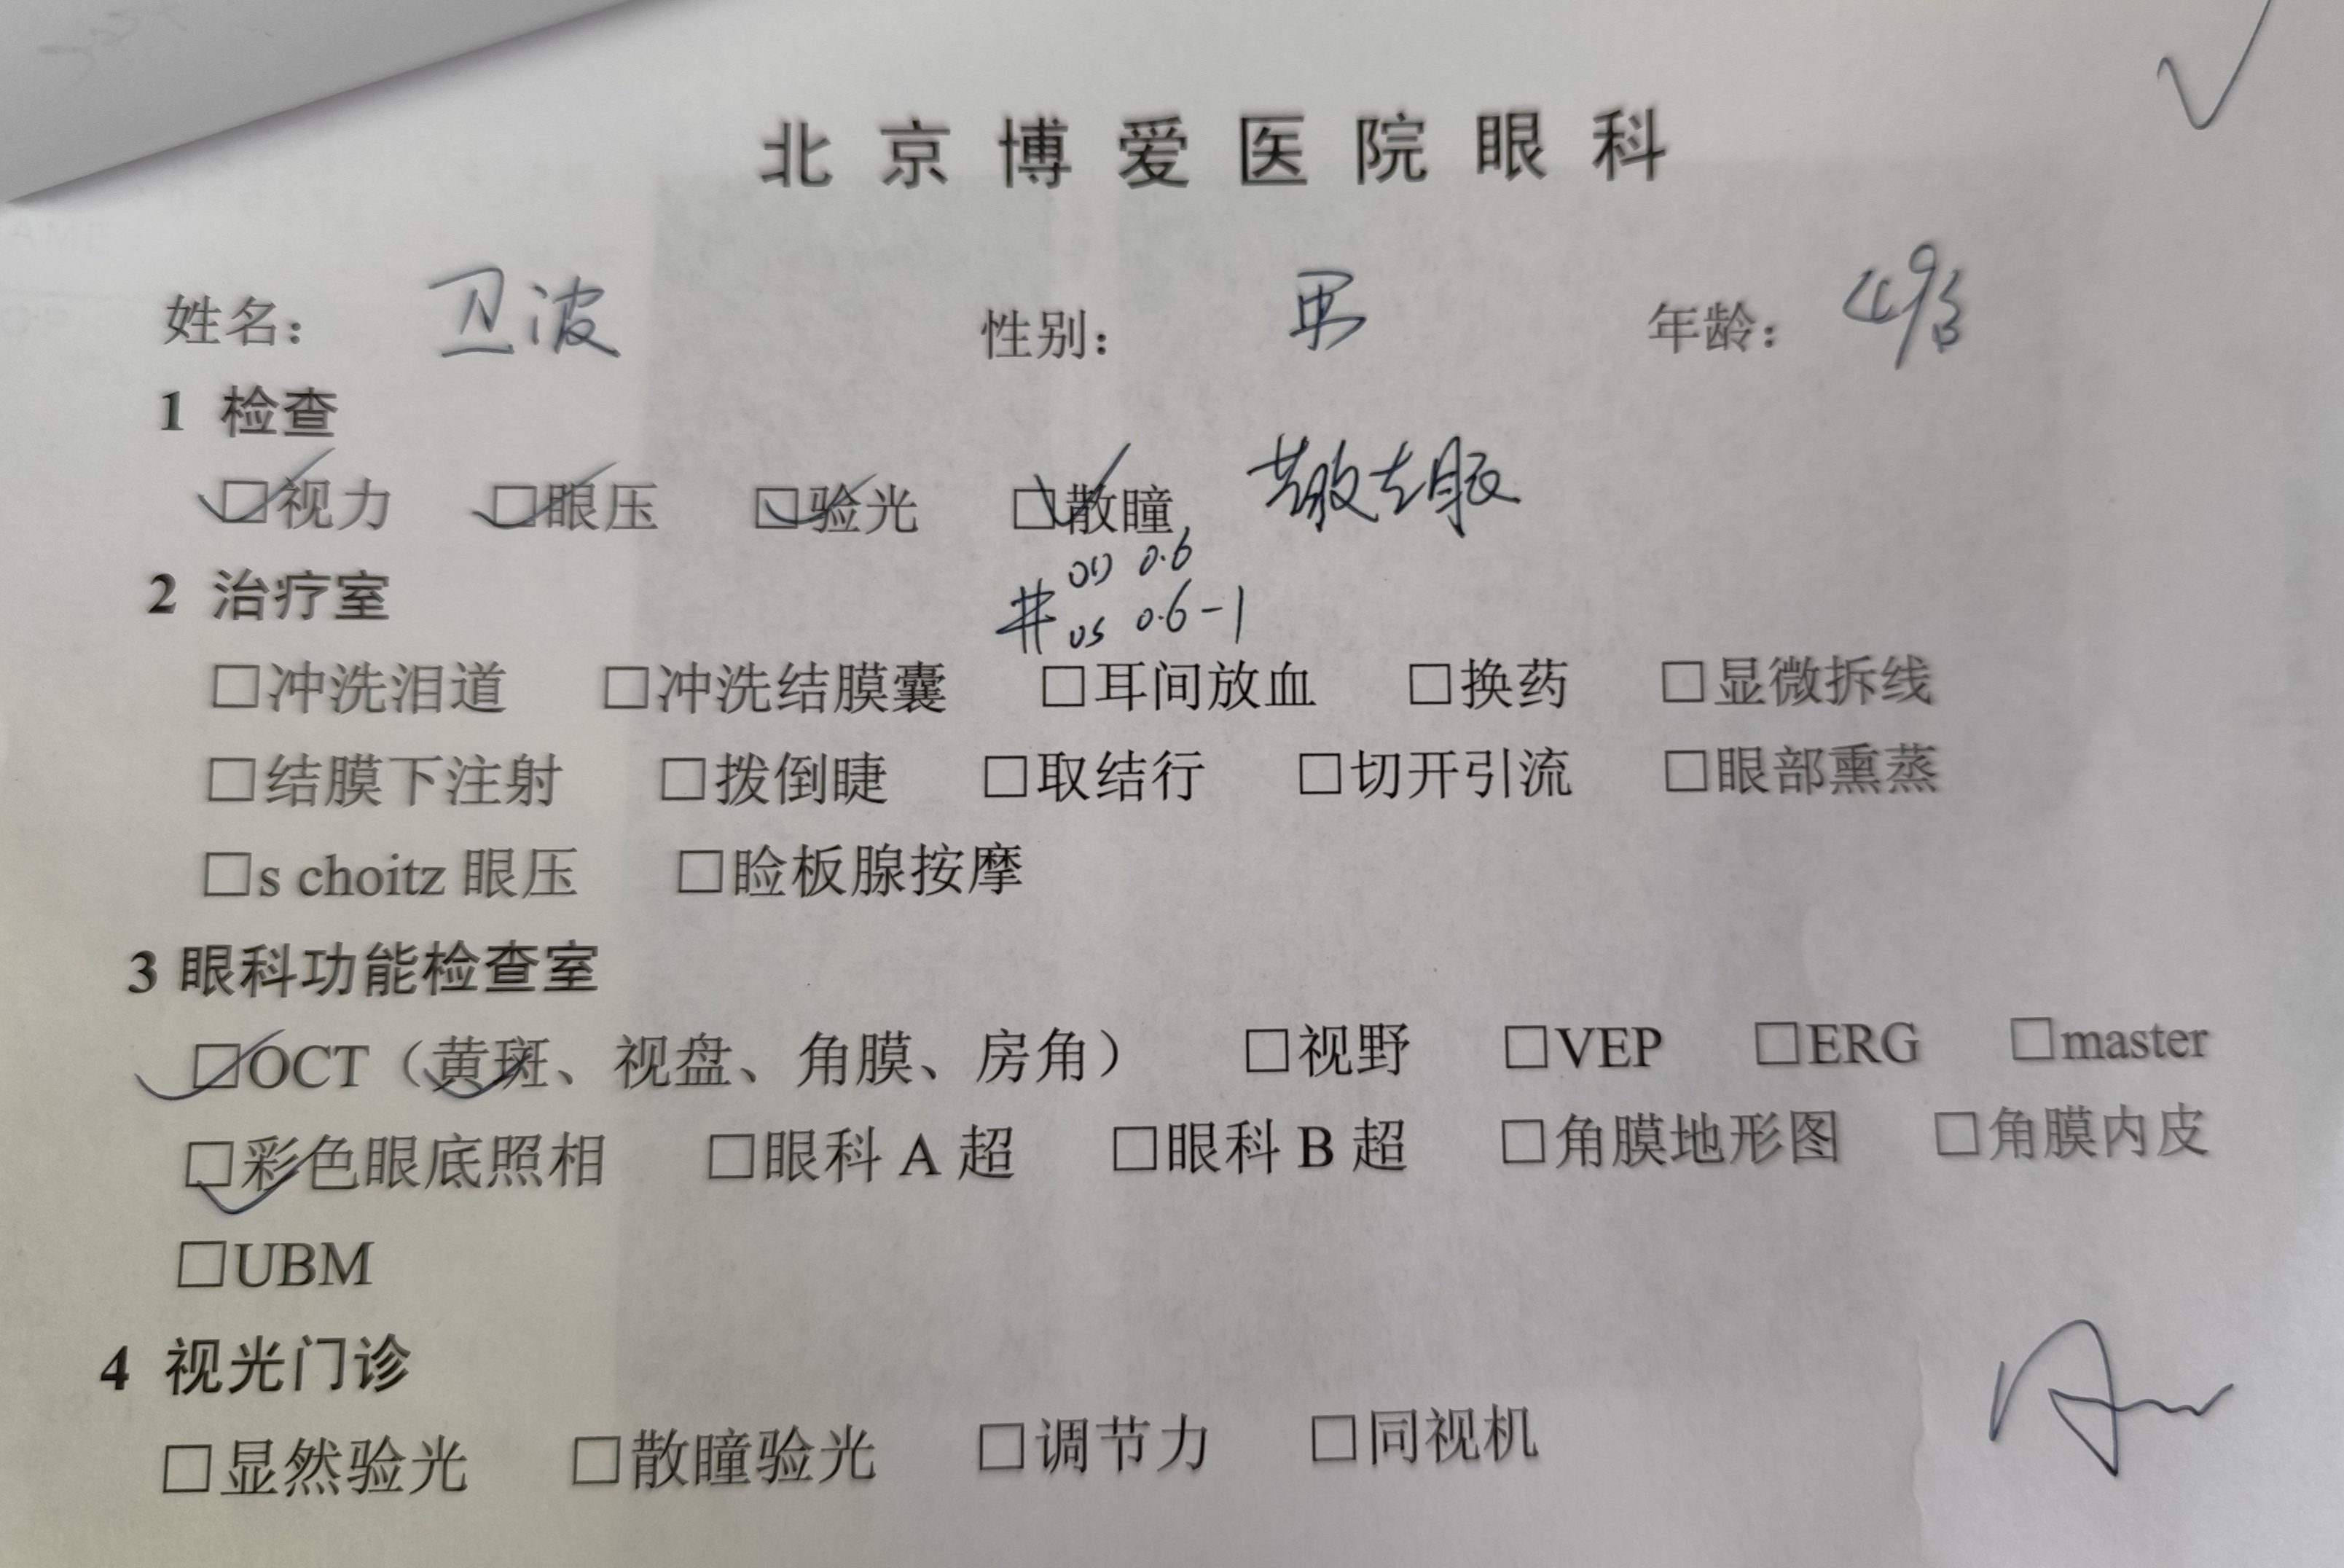 北京博爱医院眼科
姓名： 卫波 性别： 男 年龄： 49岁
1 检查
□视力 □眼压 □验光 □散瞳 散左眼
OD 0.6
# OS 0.6-1
2 治疗室
□冲洗泪道 □冲洗结膜囊 □耳间放血 □换药 □显微拆线
□结膜下注射 □拨倒睫 □取结行 □切开引流 □眼部熏蒸
□s choitz 眼压 □睑板腺按摩
3 眼科功能检查室
□OCT（黄斑、视盘、角膜、房角） □视野 □VEP □ERG □master
□彩色眼底照相 □眼科 A 超 □眼科 B 超 □角膜地形图 □角膜内皮
□UBM
4 视光门诊
□显然验光 □散瞳验光 □调节力 □同视机